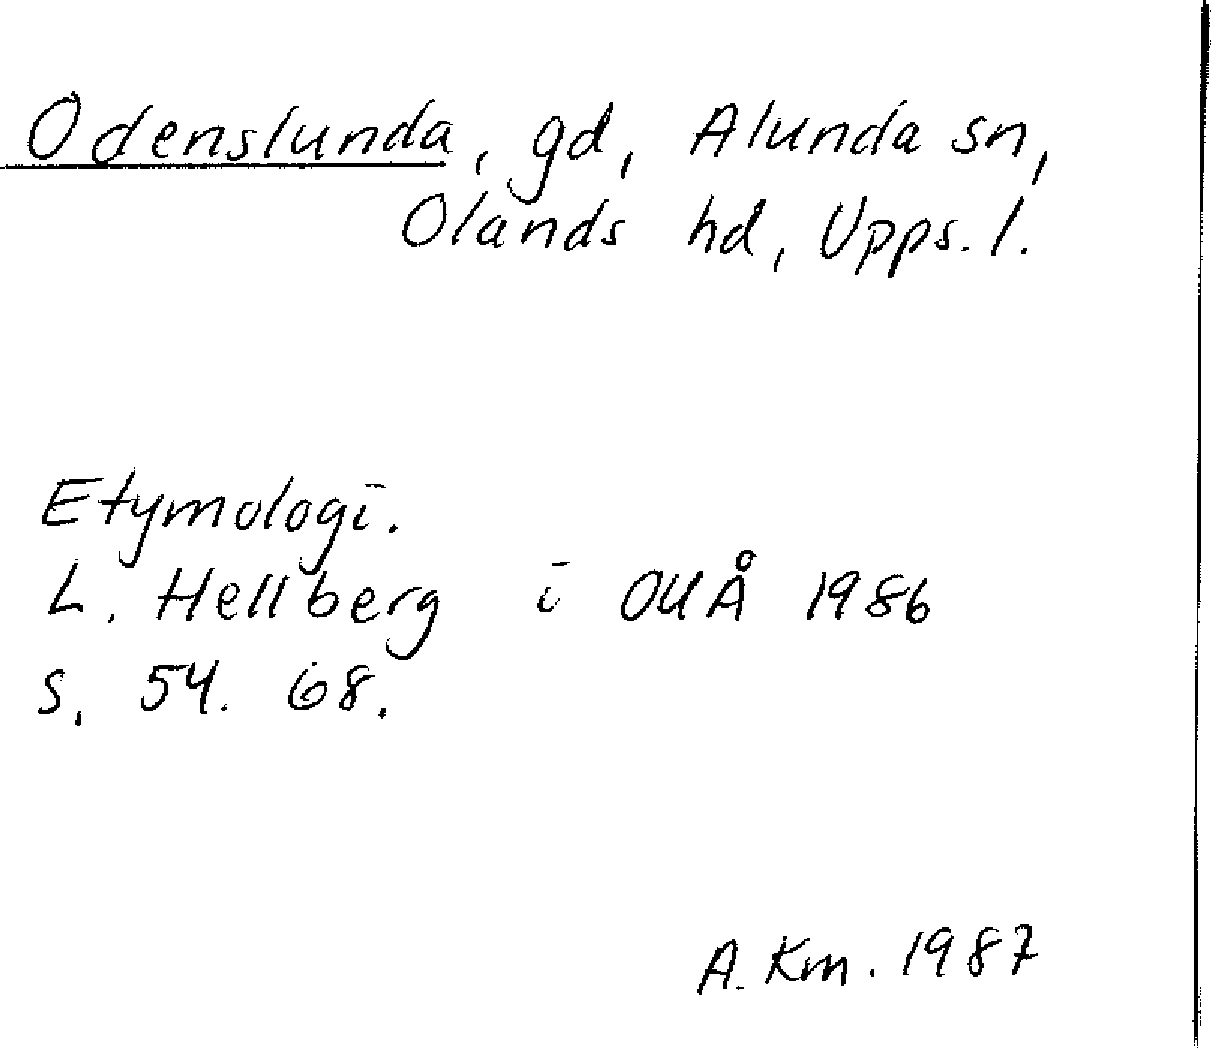 Odenslunda, gd, Alunda sn,
Olands hd, Upps. l.
Etymologi.
L. Hellberg i OUÅ 1986
s. 54. 68.
A. Km. 1987